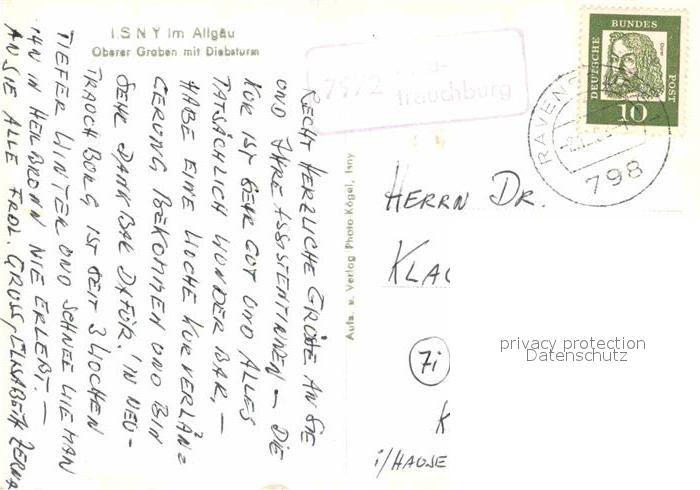 ISNY im Allgäu
Oberer Graben mit Diebsturm
RECHT HERZLICHE GRÜßE AN SIE
UND IHRE ASSISTENTINNEN – DIE
KUR IST SEHR GUT UND ALLES
TATSÄCHLICH WUNDERBAR. –
HABE EINE WOCHE KURVERLÄN=
GERUNG BEKOMMEN UND BIN
SEHR DANKBAR DAFÜR. IN NEU-
TRAUCHBURG IST SEIT 3 WOCHEN
TIEFER WINTER UND SCHNEE WIE MAN
IHN IN HEILBRONN NIE ERLEBT. –
AN SIE ALLE FRDL. GRUSS, ELISABETH
Aufn. u. Verlag Photo-Kögel, Isny
7972
trauchburg
DEUTSCHE BUNDES POST
Dürer
10
RAVENS
798
HERRN DR.
KLA
7i
K
i/HAUSE
privacy protection
Datenschutz